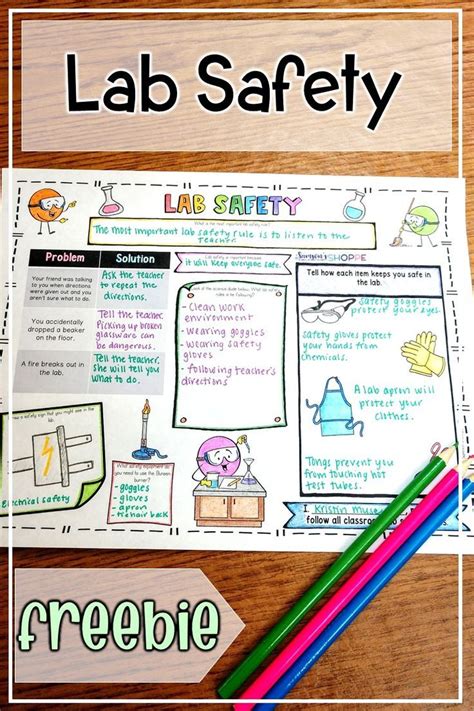 Lab Safety
LAB SAFETY
What is the most important lab safety rule?
The most important lab safety rule is to listen to the
teacher.
Problem
Solution
Your friend was talking
to you when directions
were given out and you
aren't sure what to do.
Ask the teacher
to repeat the
directions.
You accidentally
dropped a beaker
on the floor.
Tell the teacher.
Picking up broken
glassware can
be dangerous.
A fire breaks out in the
lab.
Tell the teacher.
She will tell you
what to do.
Lab safety is important because
it will keep everyone safe.
- clean work
environment
- wearing goggles
- wearing safety
gloves
- following teacher's
directions
SHOPPE
Tell how each item keeps you safe in
the lab.
safety goggles
protect your eyes.
safety gloves protect
your hands from
chemicals.
A lab apron will
protect your
clothes.
Tongs prevent you
from touching hot
test tubes.
a safety sign that you might see in the
lab.
Electrical safety
What safety equipment do
you need to use the Bunsen
burner?
- goggles
- gloves
- apron
- tie hair back
I, Kristin Muse
follow all classroom
freebie